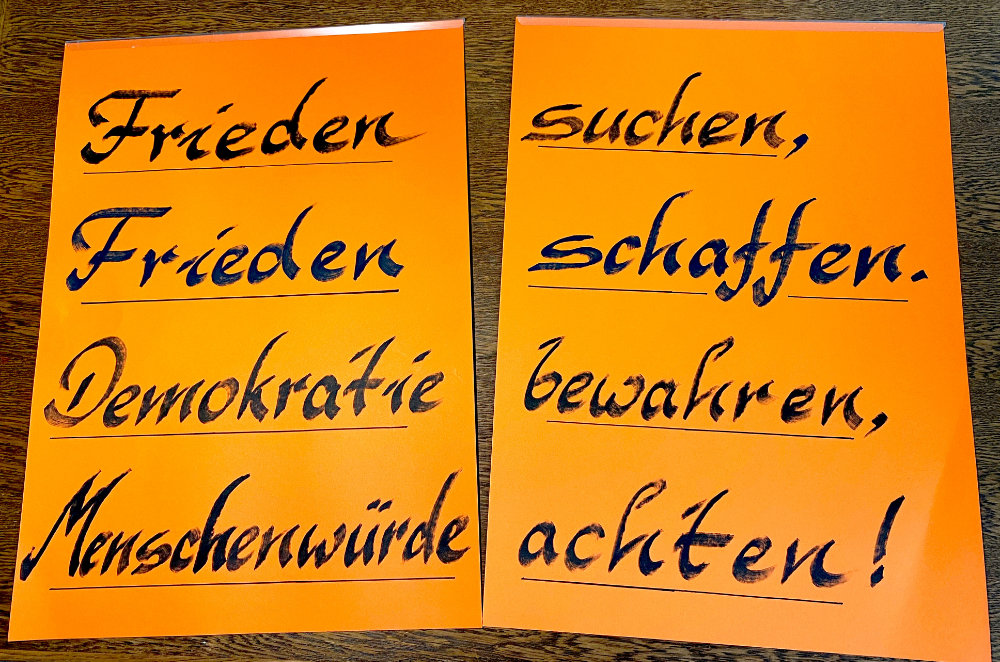 Frieden suchen,
Frieden schaffen.
Demokratie bewahren,
Menschenwürde achten!